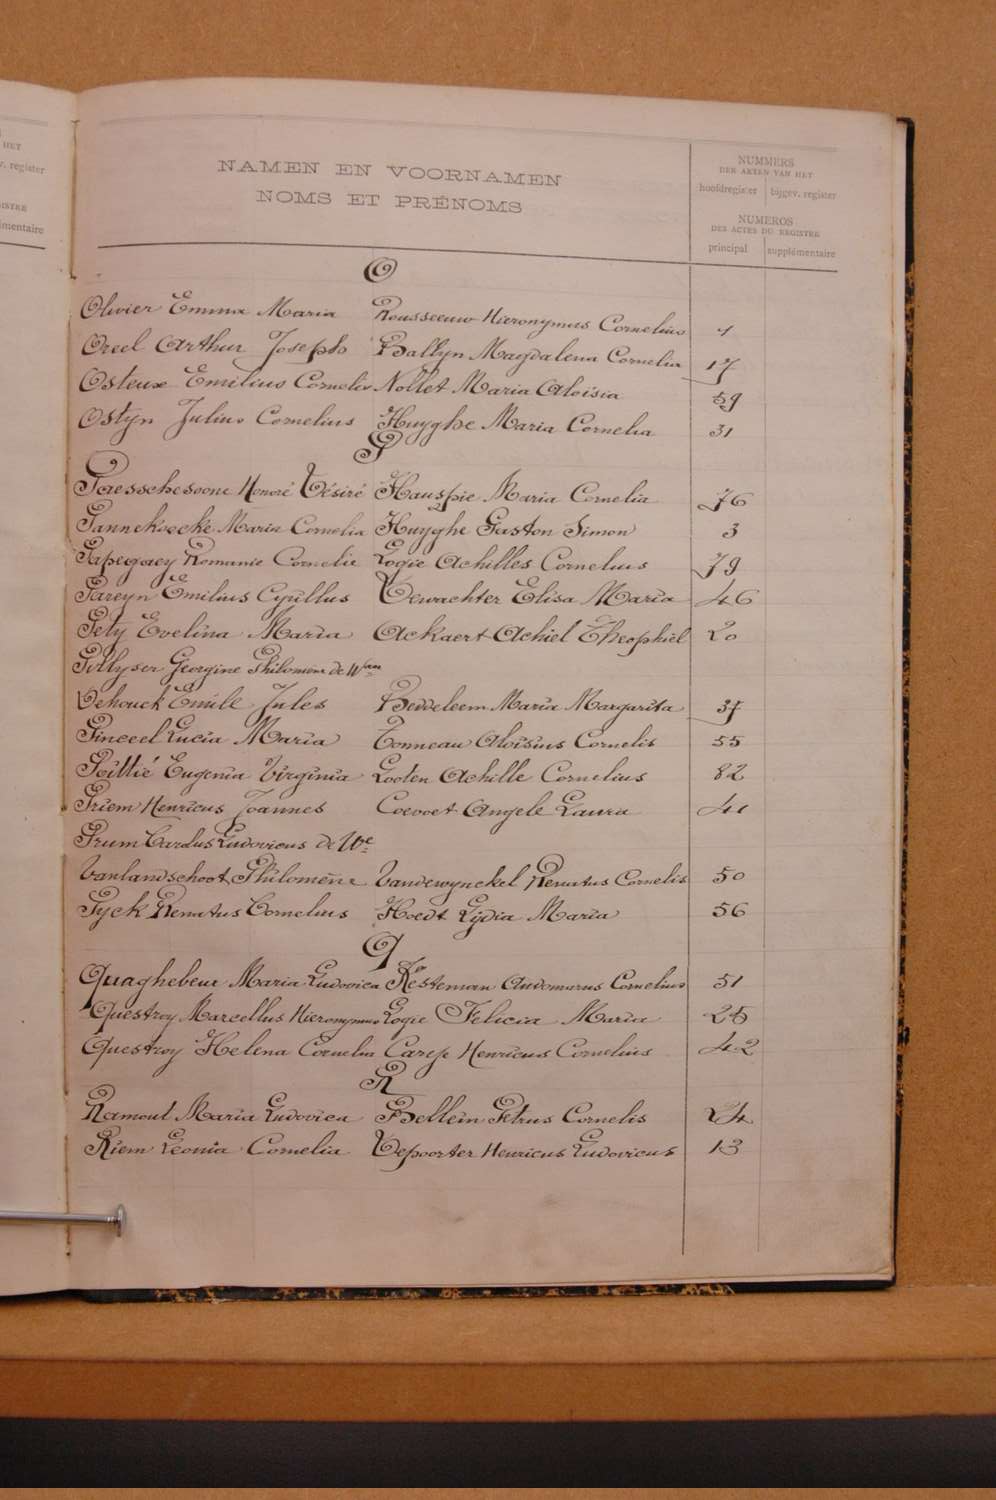 HET
v. register
ISTRE
mentaire
NAMEN EN VOORNAMEN
NOMS ET PRÉNOMS
NUMMERS
DER AKTEN VAN HET
hoofdregister bijgev. register
NUMEROS
DES ACTES DU REGISTRE
principal supplémentaire
O
Olivier Emma Maria Rousseeuw Hieronymus Cornelius 1
Oreel Arthur Joseph Ballyn Magdalena Cornelia 17
Osteux Emilius Cornelis Nollet Maria Aloisia 59
Ostyn Julius Cornelius Huyghe Maria Cornelia 31
P
Paesschesoone Honoré Désiré Hauspie Maria Cornelia 76
Pannekoecke Maria Cornelia Huyghe Gaston Simon 3
Papegaey Romanie Cornelie Logie Achilles Cornelius 79
Pareyn Emilius Cyrillus Dewachter Elisa Maria 46
Pety Evelina Maria Ackaert Achiel Theophiel 20
Pollyser Georgine Philomene de Wwe
Dehouck Emile Jules Beddeleem Maria Margarita 37
Pinceel Lucia Maria Tonneau Aloisius Cornelis 55
Poittié Eugenia Virginia Looten Achille Cornelius 82
Priem Henricus Joannes Coevoet Angele Laura 41
Prum Carolus Ludovicus de We
Vanlandschoot Philomène Vandewynckel Renatus Cornelis 50
Pyck Renatus Cornelius Hoedt Lydia Maria 56
Q
Quaghebeur Maria Ludovica Kesteman Audomarus Cornelius 51
Questroy Marcellus Hieronymus Logie Felicia Maria 25
Questroy Helena Cornelia Carye Henricus Cornelius 42
R
Ramout Maria Ludovica Bellein Petrus Cornelis 24
Riem Leonia Cornelia Depoorter Henricus Ludovicus 13